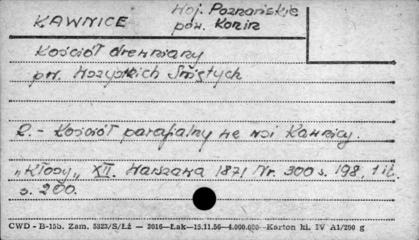 KAWNICE
Woj. Poznańskie
pow. Konin
Kościół drewniany
pw. Wszystkich Świętych
2. - Kościół parafialny we wsi Kawnicy.
"Kłosy", XII. Warszawa 1871 Nr. 300 s. 198, 1 il.
s. 200.
CWD - B-15b. Zam. 5323/S/Łź — 2016—Łak—15.11.56—4.000.000 Karton kl. IV A1/250 g